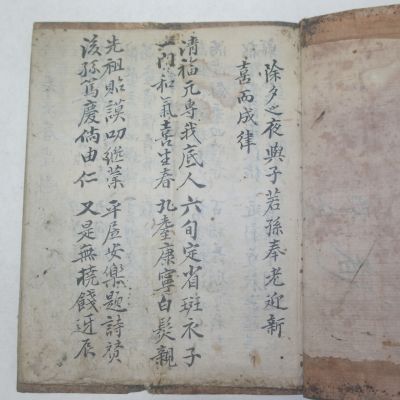 除夕之夜與子若孫奉老迎新
喜而成律
清福元專我底人 六旬定省斑衣子
一門和氣喜生春 九耋康寧白髮親
先祖貽謨叨継業 平居安樂題詩
後孫篤慶倘由仁 又是無撓餞迓辰